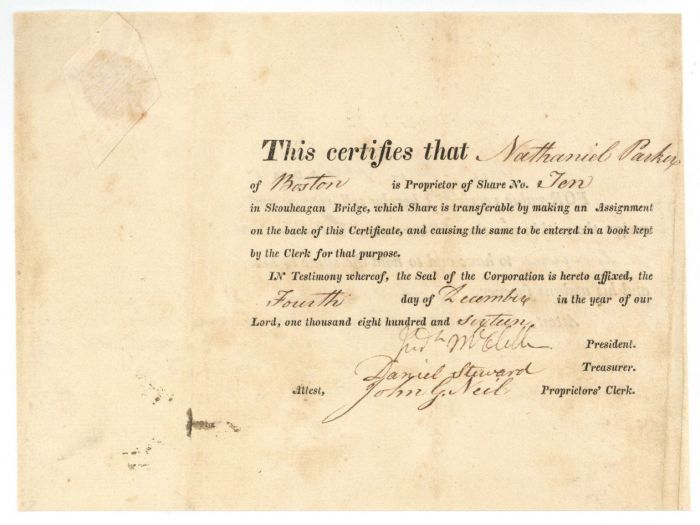 This certifies that Nathaniel Parker
of Boston is Proprietor of Share No. Ten
in Skouheagan Bridge, which Share is transferable by making an Assignment
on the back of this Certificate, and causing the same to be entered in a book kept
by the Clerk for that purpose.
IN Testimony whereof, the Seal of the Corporation is hereto affixed, the
Fourth day of December in the year of our
Lord, one thousand eight hundred and sixteen
President.
Daniel Steward Treasurer.
Attest, John G. Neil Proprietors' Clerk.